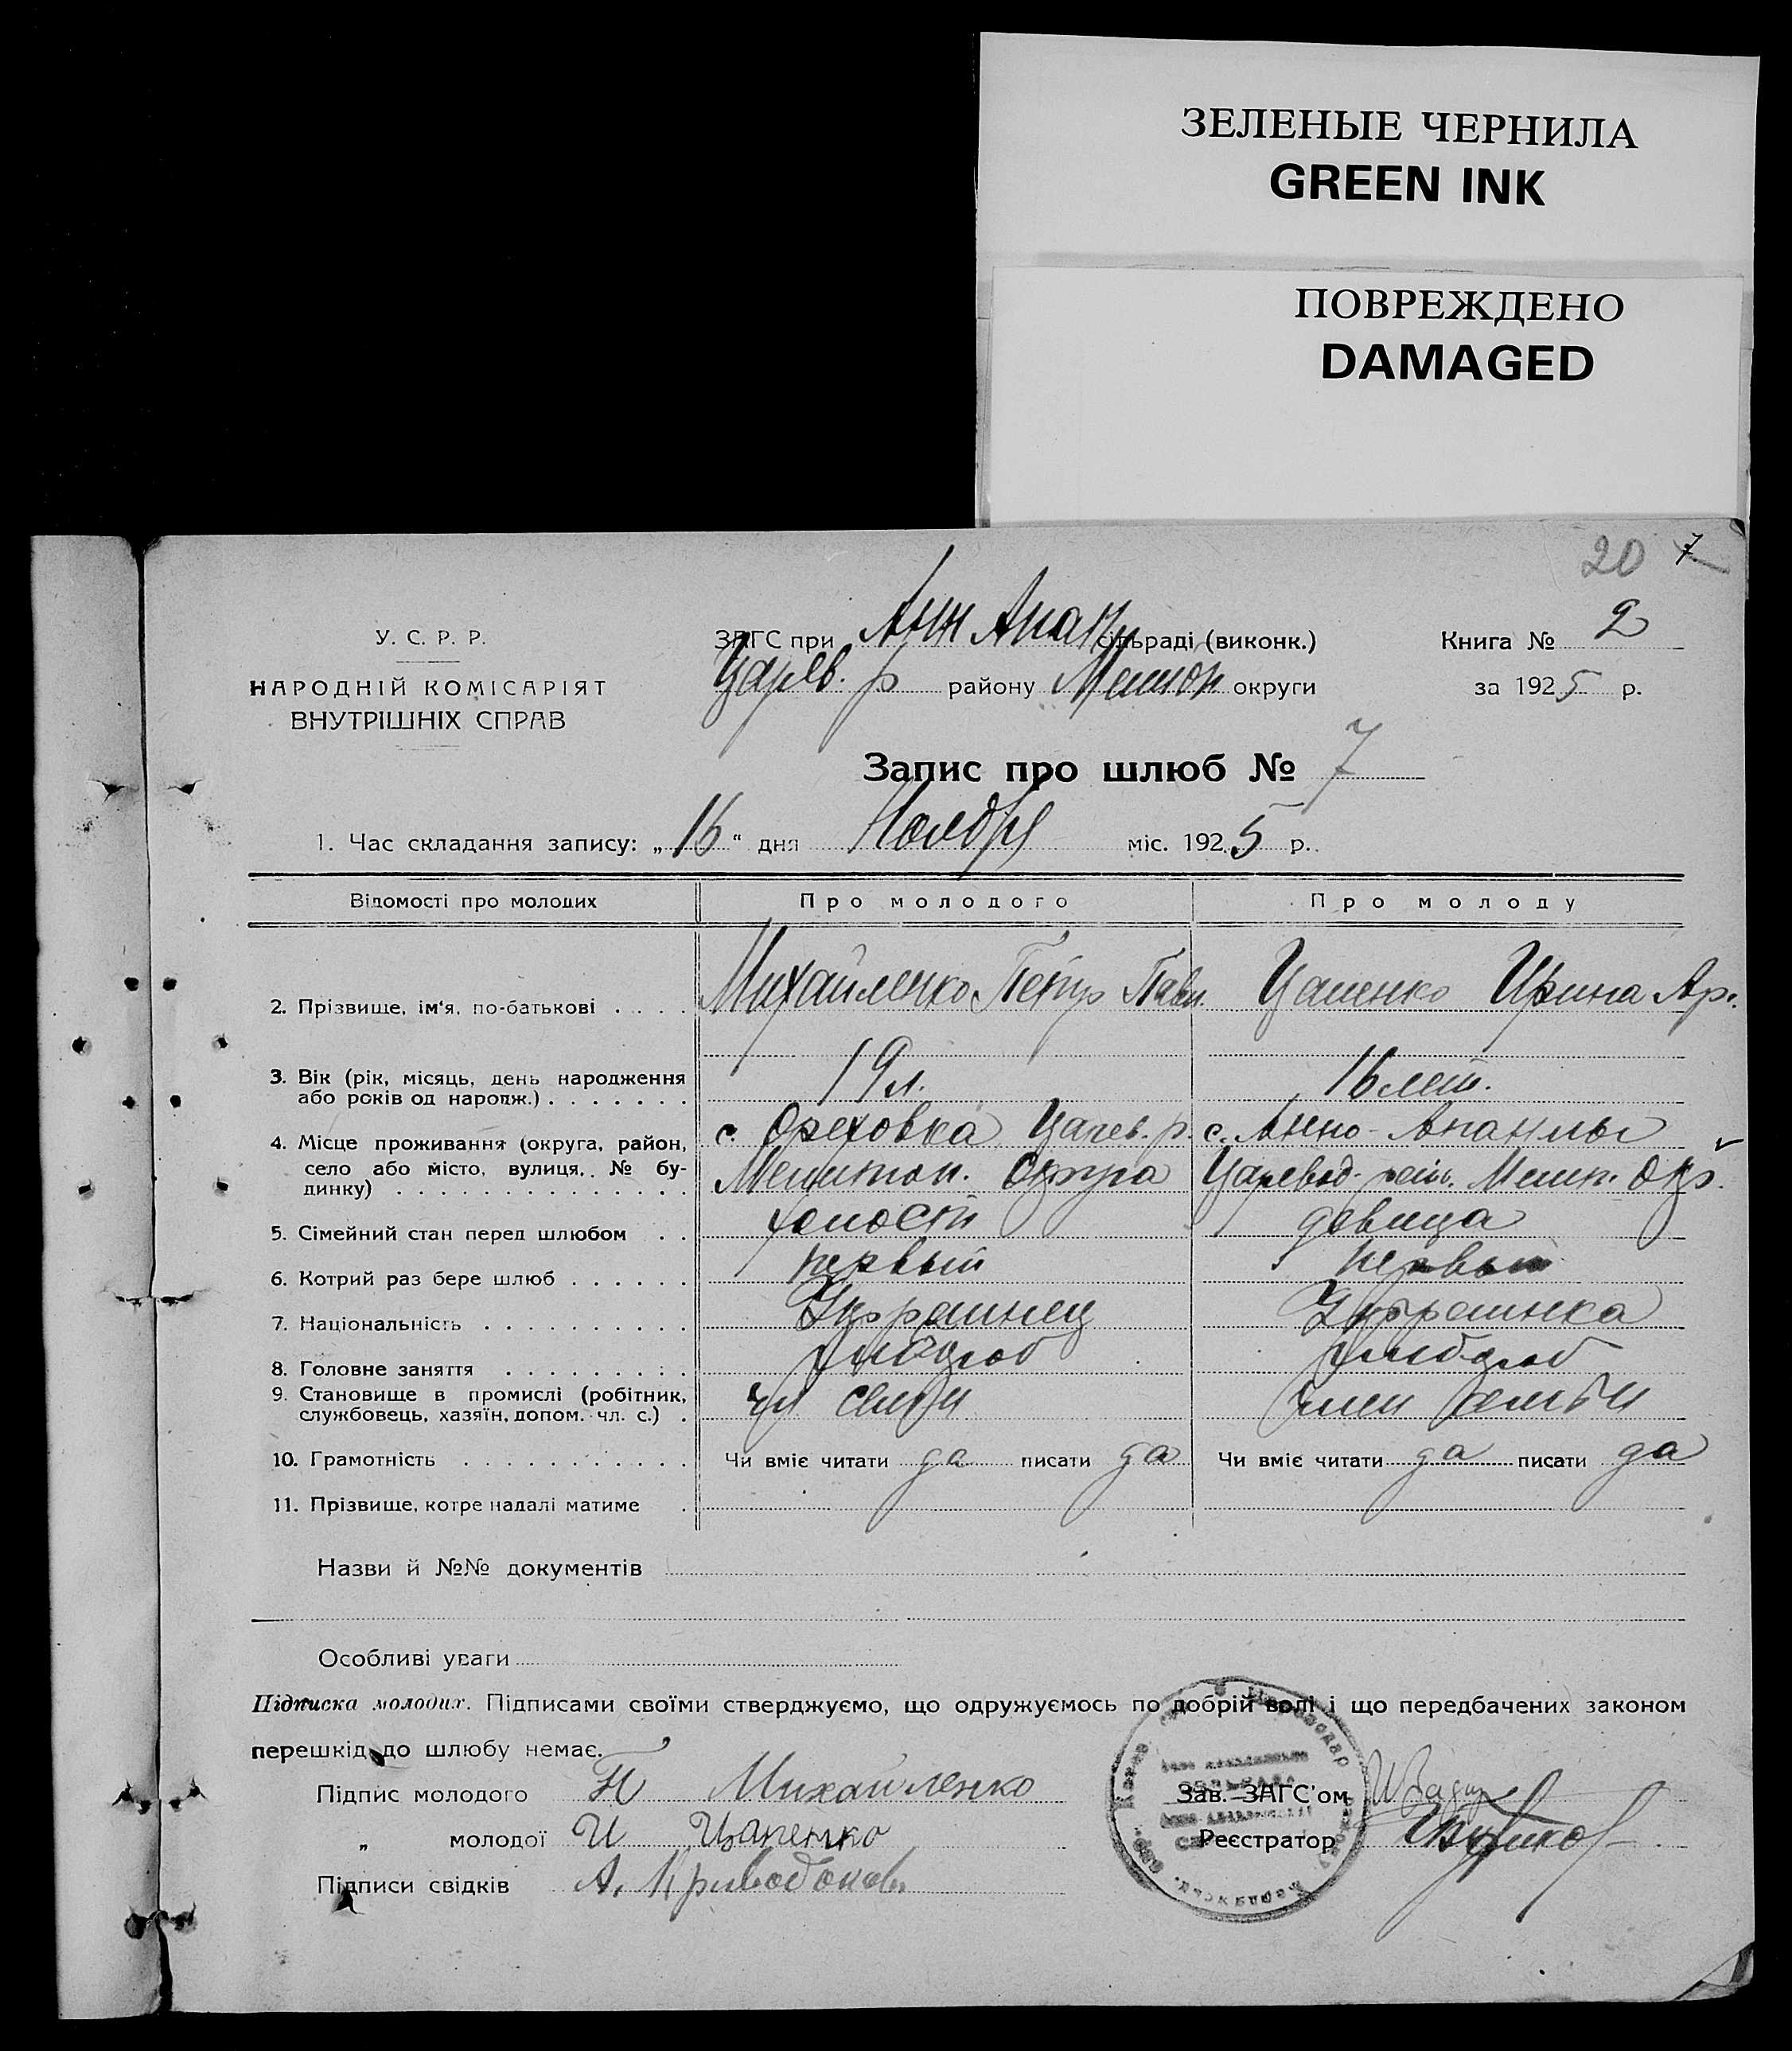 ЗЕЛЕНЫЕ ЧЕРНИЛА
GREEN INK
ПОВРЕЖДЕНО
DAMAGED
20 7
У. С. Р. Р.
НАРОДНІЙ КОМІСАРІЯТ
ВНУТРІШНІХ СПРАВ
ЗАГС при Анн Апан сільраді (виконк.)
Царев. р району Мелитоп округи
Книга № 2
за 1925 р.
Запис про шлюб № 7
1. Час складання запису: „16“ дня Ноября міс. 1925 р.
Відомості про молодих Про молодого Про молоду
2. Прізвище, ім‘я, по-батькові . . . . Михайленко Петр Павл. Цапенко Ирина Ар.
3. Вік (рік, місяць, день народження
або років од народж.) . . . . . . . 19 л. 16 лет.
4. Місце проживання (округа, район,
село або місто, вулиця, № бу-
динку) . . . . . . . . . . . . . .
с. Ореховка Царев. р.
Мелитоп. Округа
с. Анно-Апанлы
Царевод. райо. Мелит. Окр.
5. Сімейний стан перед шлюбом . . холост девица
6. Котрий раз бере шлюб . . . . . . первый первый
7. Національність . . . . . . . . . . Украинец Украинка
8. Головне заняття . . . . . . . . . хлебороб хлебороб
9. Становище в промислі (робітник,
службовець, хазяїн, допом. чл. с.) . чл семьи член семьи
10. Грамотність . . . . . . . . . . . Чи вміє читати да писати да Чи вміє читати да писати да
11. Прізвище, котре надалі матиме .
Назви й №№ документів
Особливі уваги
Підписка молодих. Підписами своїми стверджуємо, що одружуємось по добрій волі і що передбачених законом
перешкід до шлюбу немає.
Підпис молодого П Михайленко
„ молодої И Цапенко
Підписи свідків А. Криводонов
Зав. ЗАГС’ом
Реєстратор